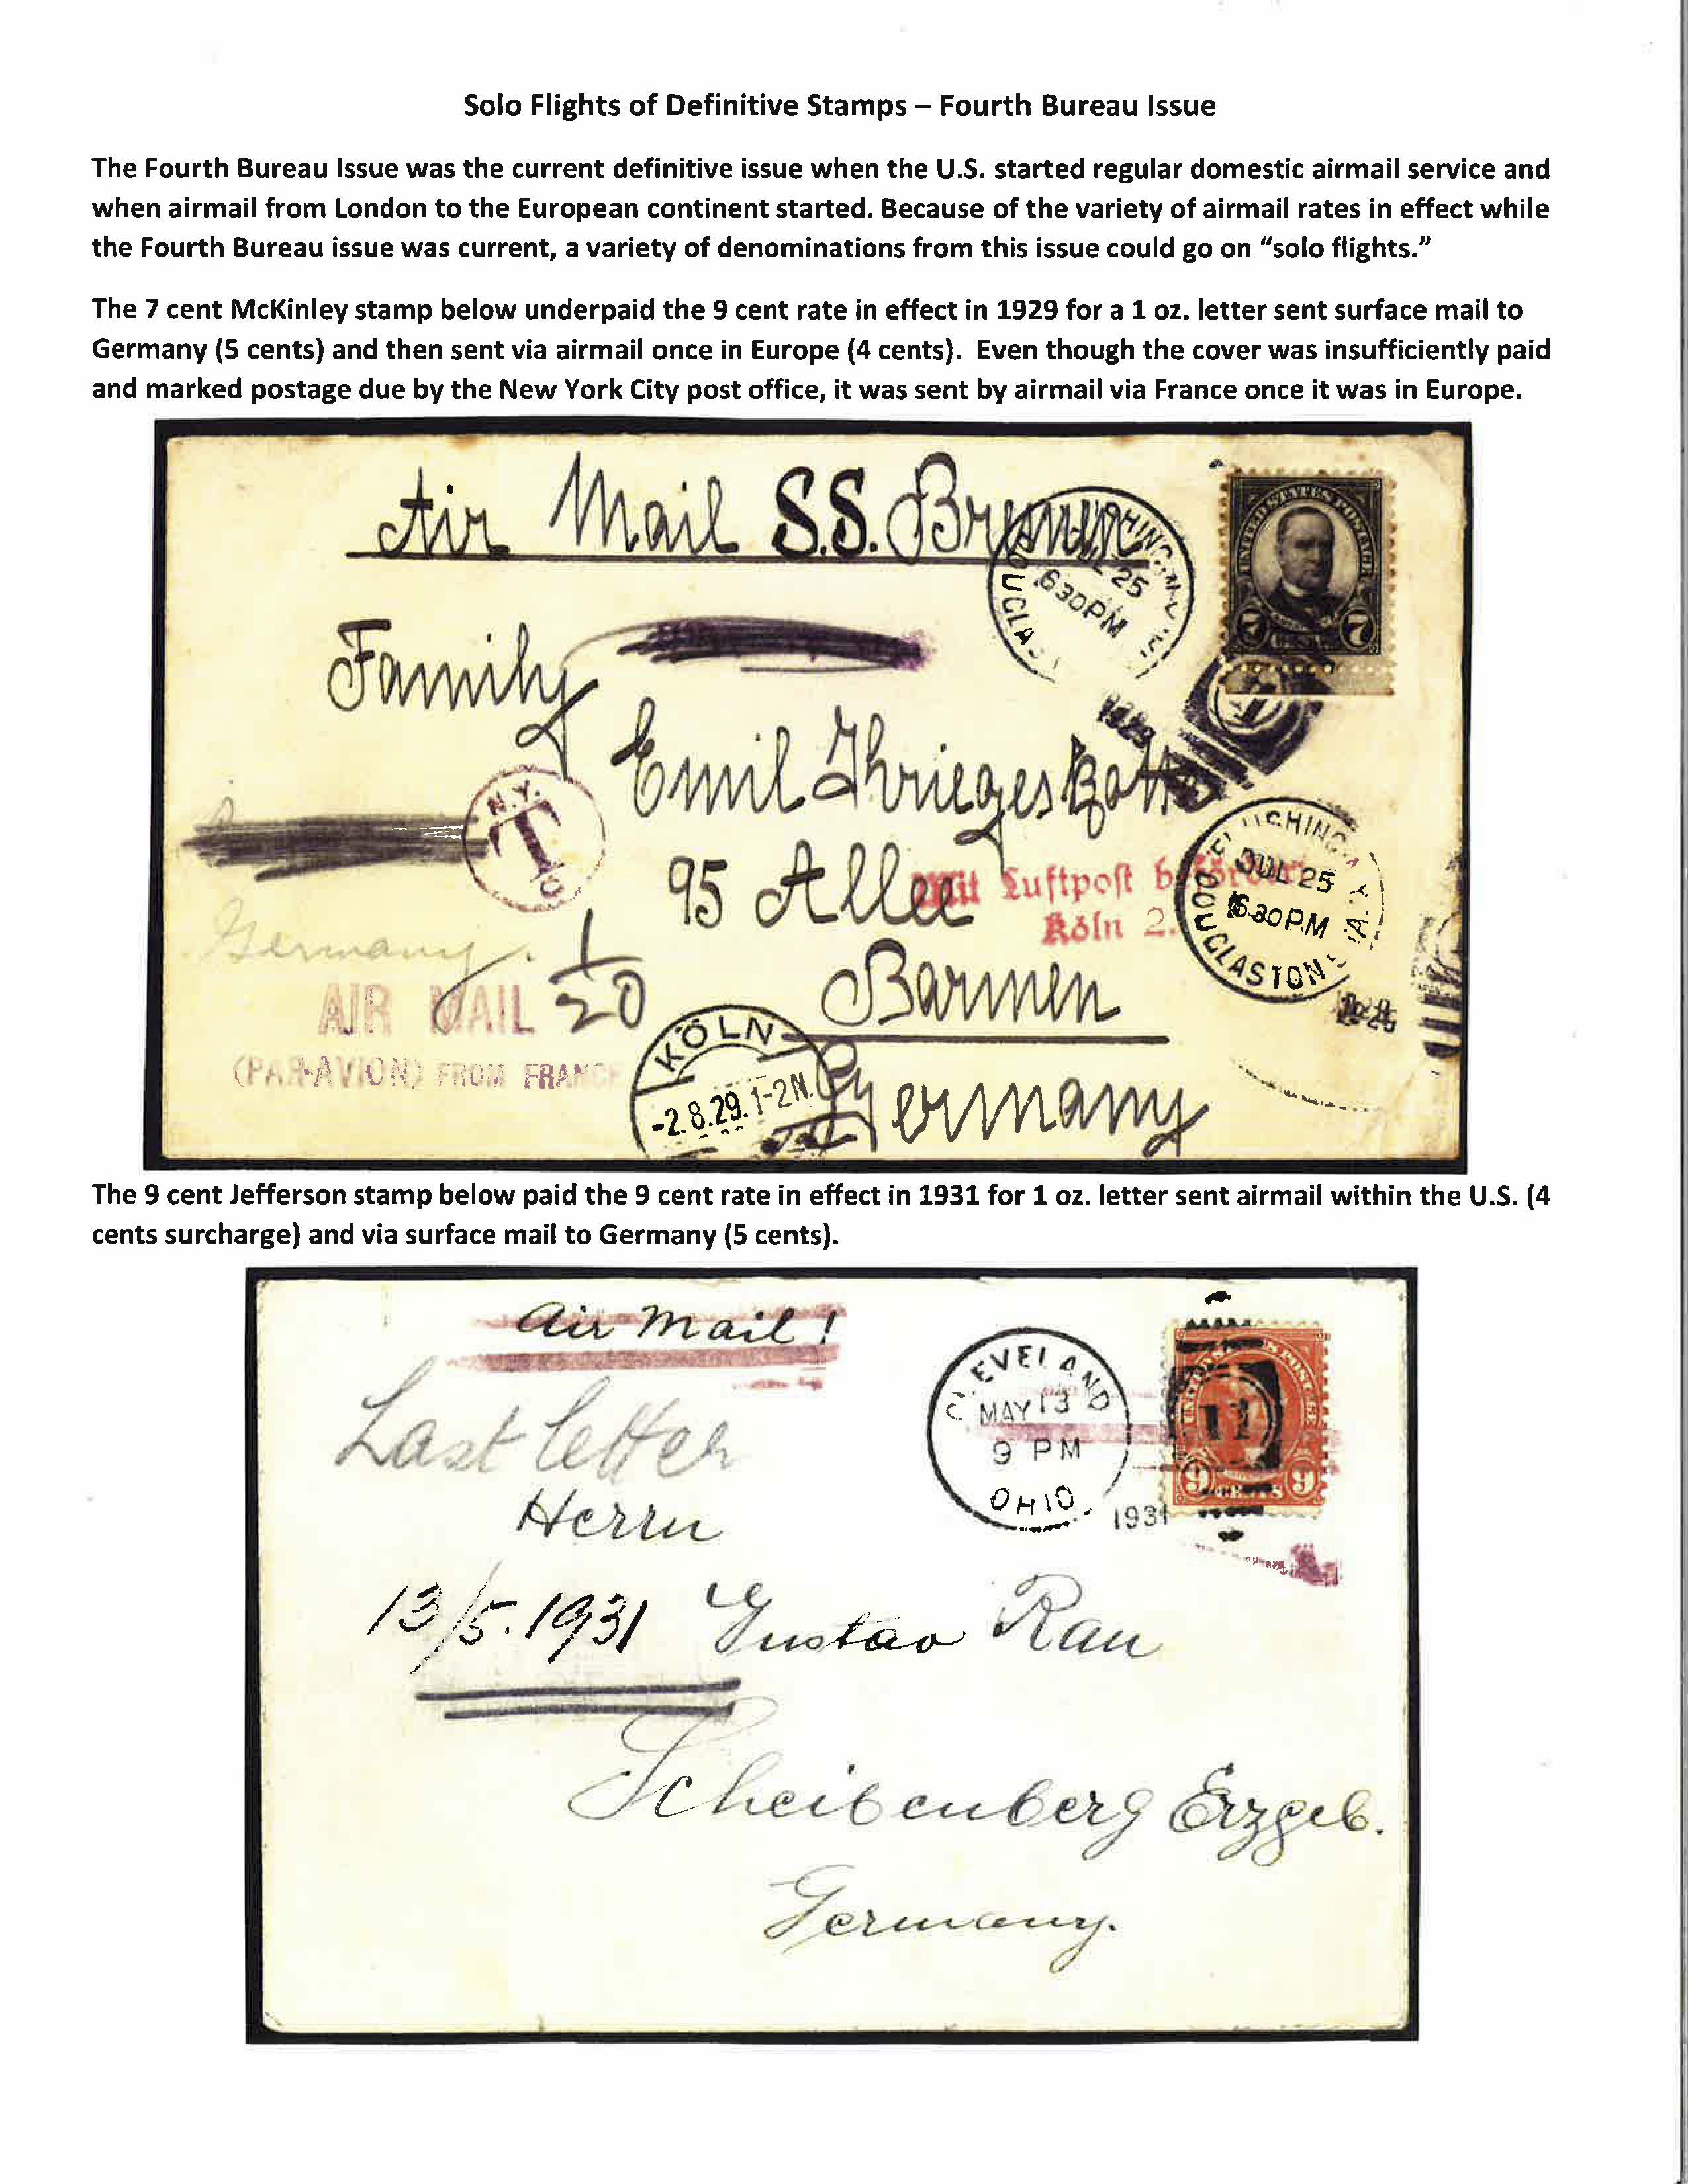 Solo Flights of Definitive Stamps – Fourth Bureau Issue
The Fourth Bureau Issue was the current definitive issue when the U.S. started regular domestic airmail service and
when airmail from London to the European continent started. Because of the variety of airmail rates in effect while
the Fourth Bureau issue was current, a variety of denominations from this issue could go on “solo flights.”
The 7 cent McKinley stamp below underpaid the 9 cent rate in effect in 1929 for a 1 oz. letter sent surface mail to
Germany (5 cents) and then sent via airmail once in Europe (4 cents). Even though the cover was insufficiently paid
and marked postage due by the New York City post office, it was sent by airmail via France once it was in Europe.
Air Mail S.S. Bremen
JUL 25
630PM
1929
UNITED STATES POSTAGE
7 7
Family
Emil
N.Y.
T
C
95 Allee
Mit Luftpost befördert
Köln 2.
FLUSHING
JUL 25
630PM
DOUGLASTON
Germany
1/20
AIR MAIL
(PAR-AVION) FROM FRANCE
Barmen
KÖLN
-2.8.29.1-2N.
Germany
The 9 cent Jefferson stamp below paid the 9 cent rate in effect in 1931 for 1 oz. letter sent airmail within the U.S. (4
cents surcharge) and via surface mail to Germany (5 cents).
Air Mail!
CLEVELAND
MAY 13
9 PM
OHIO
1931
9 CENTS 9
Last letter
Herrn
13/5.1931 Gustav Rau
Scheibenberg Erzgeb.
Germany.